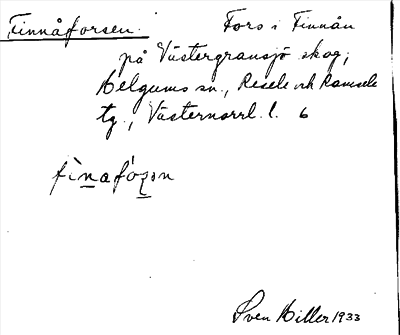 Finnåforsen. Fors i Finnån
på Västergransjö skog,
Helgums sn., Resele och Ramsele
tg., Västernorrl. l. 6
fìnafóʂən
Sven Hiller 1933